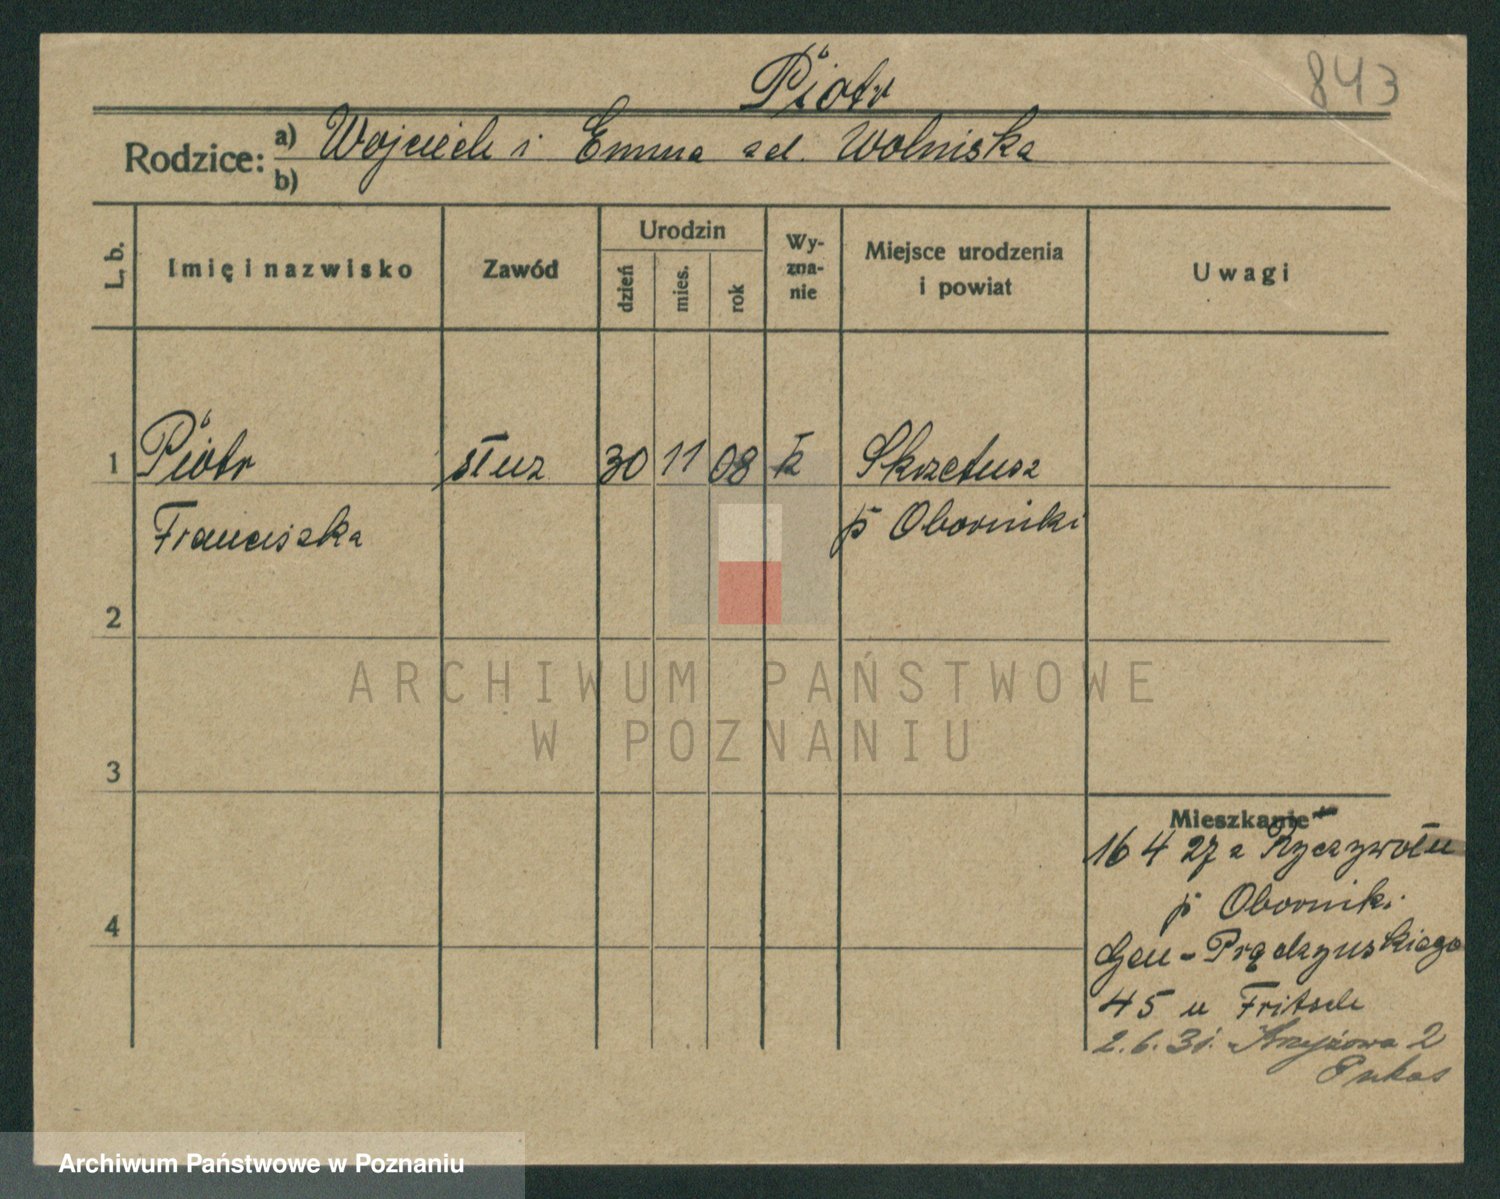 Piotr
843
Rodzice: a) Wojciech i Emma zd. Wolniska
b)
L. b.
Imię i nazwisko
Zawód
Urodzin
dzień
mies.
rok
Wy-
zna-
nie
Miejsce urodzenia
i powiat
Uwagi
1 Piotr służ 30 11 08 k Skrzetusz
Franciszka p Oborniki
2
3
4
Mieszkanie
16 4 27 z Ryczywołu
p Oborniki
Gen-Prądzyńskiego
45 u Fritsch
2.6.31. Krzyżowa 2
ARCHIWUM PAŃSTWOWE
W POZNANIU
Archiwum Państwowe w Poznaniu